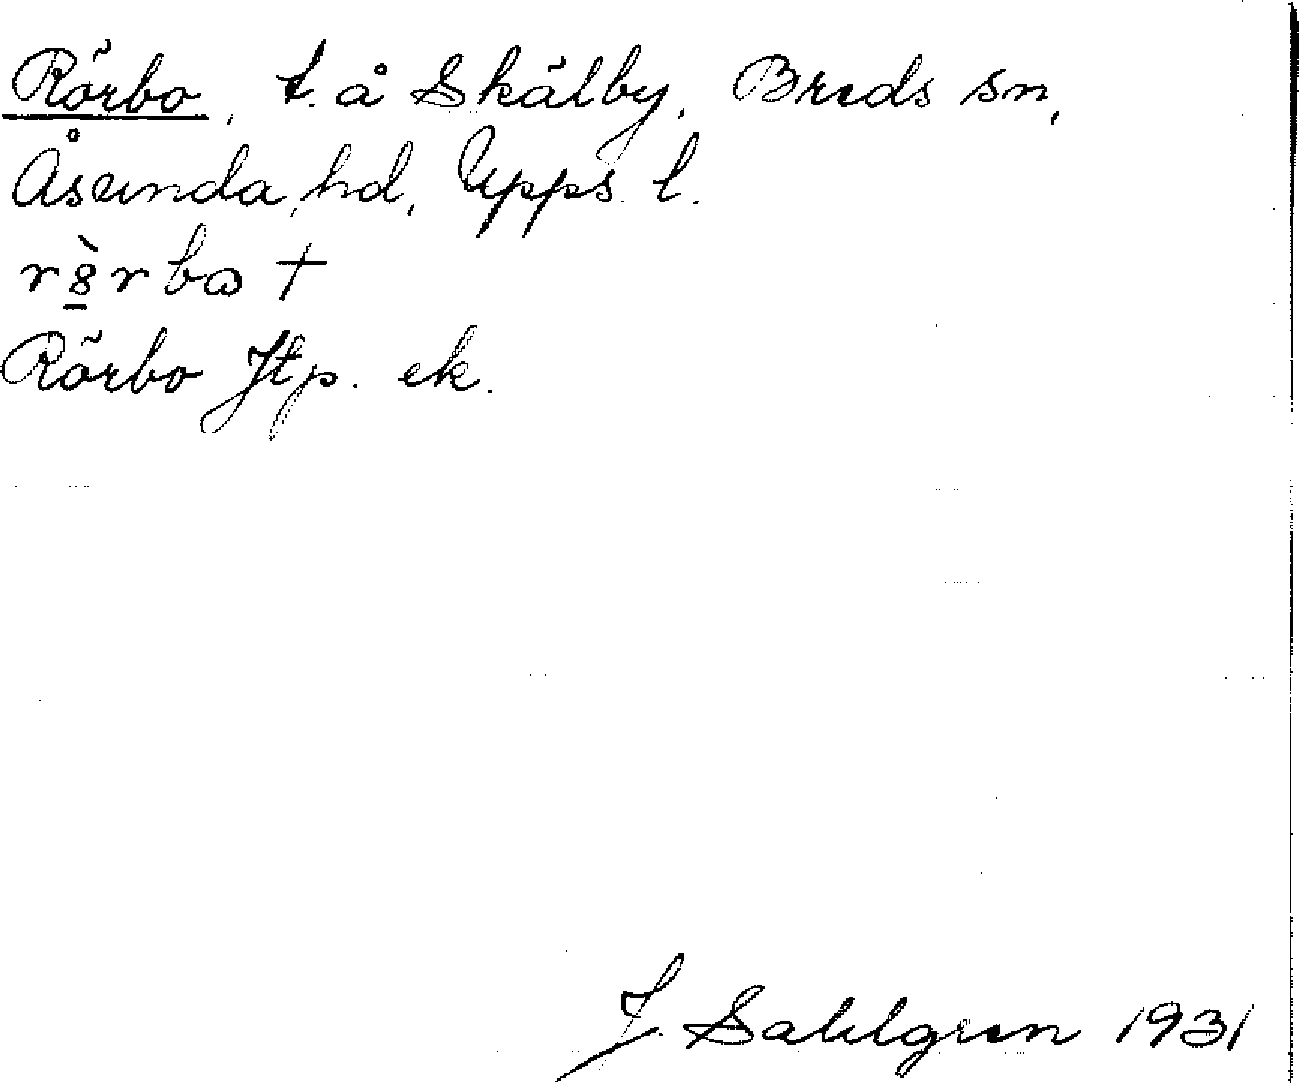 Rörbo, t. å Skälby, Breds sn,
Åsunda hd, Upps. l.
Rörbo Jtp. ek.
J. Sahlgren 1931